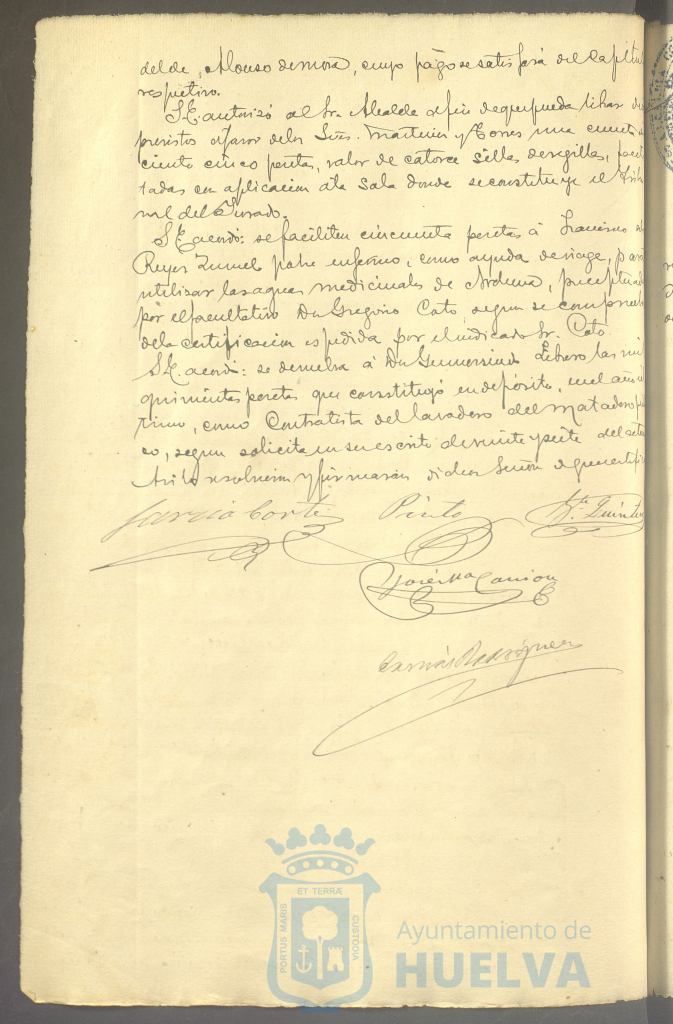 del de, Alonso de mora, cuyo pago se satisfará del Capítul
respectivo.
S.E. autorizó al Sr. Alcalde a fin de que pueda librar de
a favor de los Sres. y Torres una cuenta de
ciento cinco pesetas, valor de catorce sillas de regilla, facili
tadas con aplicacion a la Sala donde se constituye el Tribu
nal del Jurado.
S.E. acordó: se faciliten cincuenta pesetas á Francisco de
Reyes pobre enfermo, como ayuda de viage, para
utilizar las aguas medicinales de preceptuadas
por el facultativo Dn Gregorio Coto, segun se comprueba
de la certificacion espedida por el indicado Sr. Coto.
S.E. acordó: se devuelva á Dn Gumersindo las mil
quinientas pesetas que constituyó en depósito, en el año
timo, como Contratista del lavadero del matadero pú
co, segun solicita en su escrito de veinte y siete del
Asi lo resolvieron y firmaran dichos Señores de que certifi
Garcia Cortés Pinto
José Ma
Rodríguez
PORTUS MARIS ET TERRÆ CUSTODIA
Ayuntamiento de
HUELVA